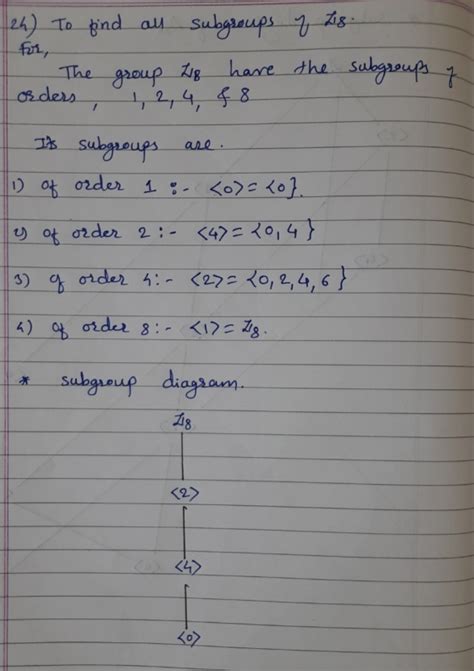 24) To find all subgroups of ℤ8.
For,
The group ℤ8 have the subgroups of
orders, 1, 2, 4, & 8
Its subgroups are.
1) of order 1 :- <0> = {0}.
2) of order 2 :- <4> = {0, 4}
3) of order 4 :- <2> = {0, 2, 4, 6}
4) of order 8 :- <1> = ℤ8.
* subgroup diagram.
ℤ8
<2>
<4>
<0>